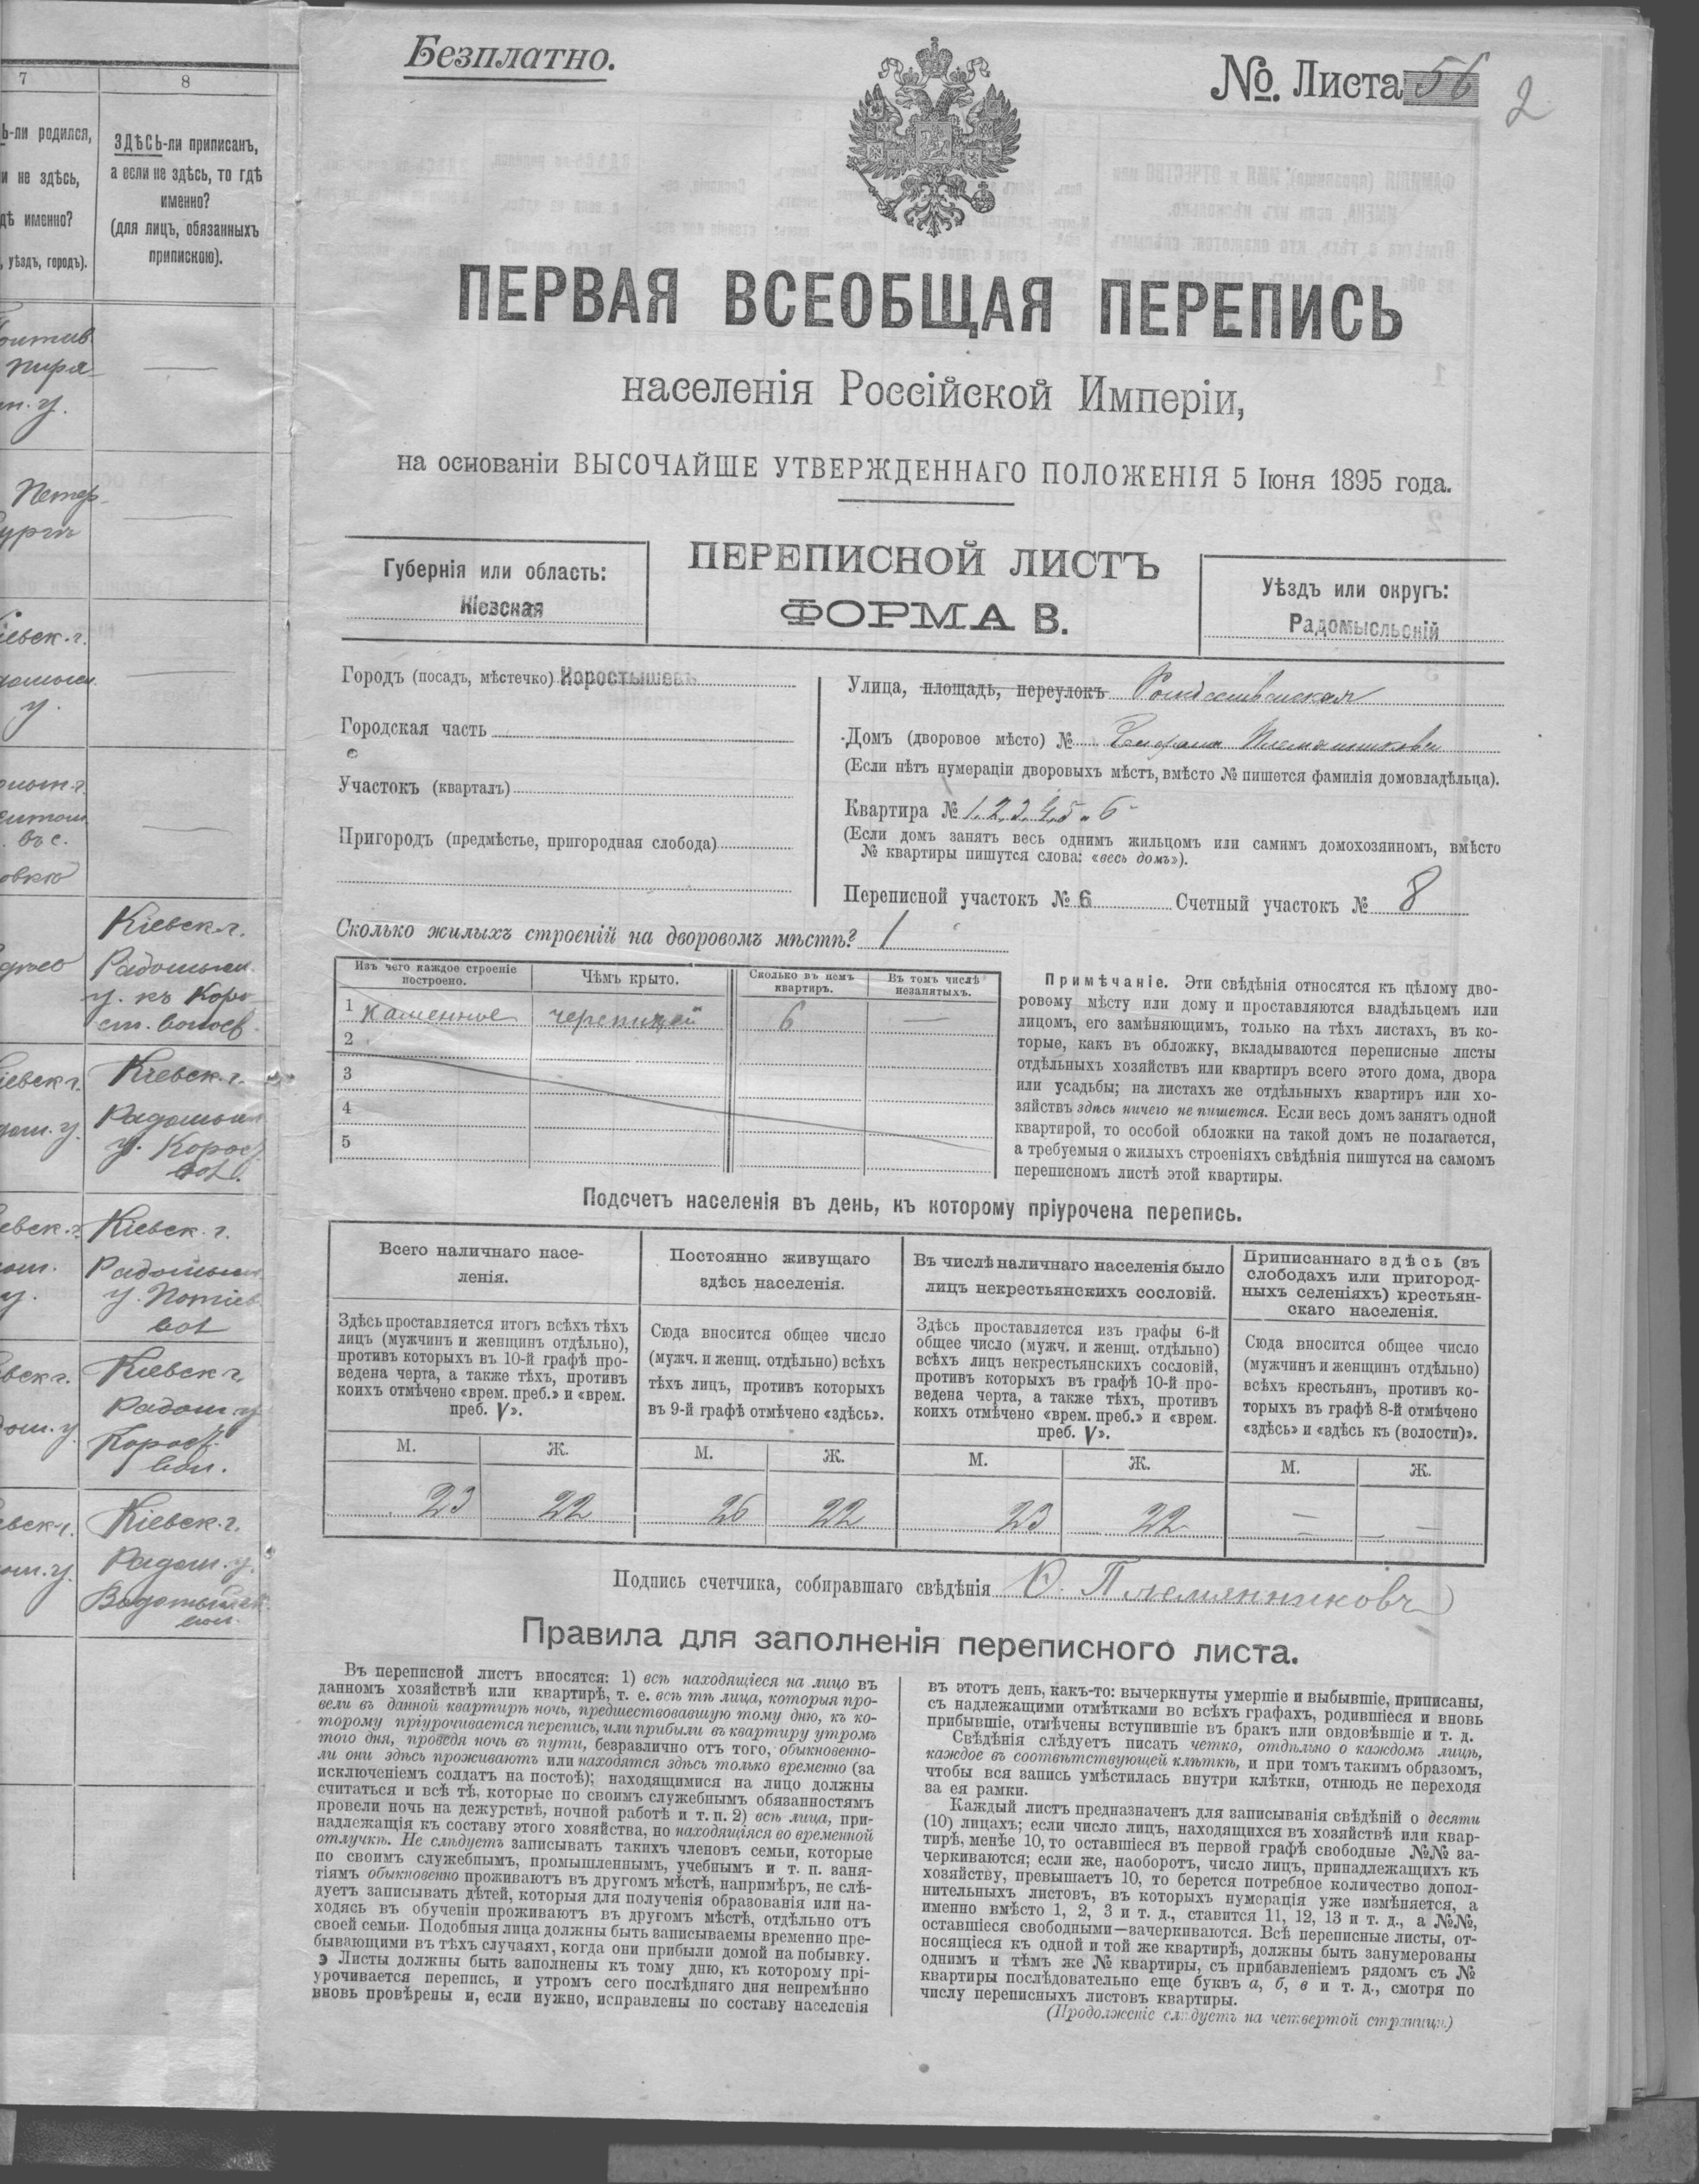 7
8
Ь-ли родился,
и не здѣсь,
дѣ именно?
, уѣздъ, городъ).
ЗДѢСЬ-ли приписанъ,
а если не здѣсь, то гдѣ
именно?
(для лицъ, обязанныхъ
припискою).
Кіевск. г.
Радомысл.
у. къ Коро-
Кіевск. г.
у. Корост.
вол.
Кіевск. г.
у. Потіев
вол
Кіевск г.
Радом. у
Корост.
вол.
Кіевск. г.
Радом. у.
Безплатно.
№. Листа 56
2
ПЕРВАЯ ВСЕОБЩАЯ ПЕРЕПИСЬ
населенія Россійской Имперіи,
на основаніи ВЫСОЧАЙШЕ УТВЕРЖДЕННАГО ПОЛОЖЕНІЯ 5 Іюня 1895 года.
Губернія или область:
Кіевская
ПЕРЕПИСНОЙ ЛИСТЪ
ФОРМА В.
Уѣздъ или округъ:
Радомысльскій
Городъ (посадъ, мѣстечко) Коростышевъ
Городская часть
Участокъ (кварталъ)
Пригородъ (предмѣстье, пригородная слобода)
Улица, площадь, переулокъ
Домъ (дворовое мѣсто) №
(Если нѣтъ нумераціи дворовыхъ мѣстъ, вмѣсто № пишется фамилія домовладѣльца).
Квартира № 1, 2, 3, 4, 5 и 6
(Если домъ занятъ весь однимъ жильцомъ или самимъ домохозяиномъ, вмѣсто
№ квартиры пишутся слова: «весь домъ»).
Переписной участокъ № 6 Счетный участокъ № 8
Сколько жилыхъ строеній на дворовомъ мѣстѣ? 1
Изъ чего каждое строеніе
построено.
Чѣмъ крыто.
Сколько въ немъ
квартиръ.
Въ томъ числѣ
незанятыхъ.
1 Каменное черепицей 6 —
2
3
4
5
Примѣчаніе. Эти свѣдѣнія относятся къ цѣлому дво-
ровому мѣсту или дому и проставляются владѣльцемъ или
лицомъ, его замѣняющимъ, только на тѣхъ листахъ, въ ко-
торые, какъ въ обложку, вкладываются переписные листы
отдѣльныхъ хозяйствъ или квартиръ всего этого дома, двора
или усадьбы; на листахъ же отдѣльныхъ квартиръ или хо-
зяйствъ здѣсь ничего не пишется. Если весь домъ занятъ одной
квартирой, то особой обложки на такой домъ не полагается,
а требуемыя о жилыхъ строеніяхъ свѣдѣнія пишутся на самомъ
переписномъ листѣ этой квартиры.
Подсчетъ населенія въ день, къ которому пріурочена перепись.
Всего наличнаго насе-
ленія.
Здѣсь проставляется итогъ всѣхъ тѣхъ
лицъ (мужчинъ и женщинъ отдѣльно),
противъ которыхъ въ 10-й графѣ про-
ведена черта, а также тѣхъ, противъ
коихъ отмѣчено «врем. преб.» и «врем.
преб. V».
Постоянно живущаго
здѣсь населенія.
Сюда вносится общее число
(мужч. и женщ. отдѣльно) всѣхъ
тѣхъ лицъ, противъ которыхъ
въ 9-й графѣ отмѣчено «здѣсь».
Въ числѣ наличнаго населенія было
лицъ некрестьянскихъ сословій.
Здѣсь проставляется изъ графы 6-й
общее число (мужч. и женщ. отдѣльно)
всѣхъ лицъ некрестьянскихъ сословій,
противъ которыхъ въ графѣ 10-й про-
ведена черта, а также тѣхъ, противъ
коихъ отмѣчено «врем. преб.» и «врем.
преб. V».
Приписаннаго здѣсь (въ
слободахъ или пригород-
ныхъ селеніяхъ) крестьян-
скаго населенія.
Сюда вносится общее число
(мужчинъ и женщинъ отдѣльно)
всѣхъ крестьянъ, противъ ко-
торыхъ въ графѣ 8-й отмѣчено
«здѣсь» и «здѣсь къ (волости)».
М. Ж. М. Ж. М. Ж. М. Ж.
23 22 26 22 23 22 — —
Подпись счетчика, собиравшаго свѣдѣнія Племянниковъ
Правила для заполненія переписного листа.
Въ переписной листъ вносятся: 1) всѣ находящіеся на лицо въ
данномъ хозяйствѣ или квартирѣ, т. е. всѣ тѣ лица, которыя про-
вели въ данной квартирѣ ночь, предшествовавшую тому дню, къ ко-
торому пріурочивается перепись, или прибыли въ квартиру утромъ
того дня, проведя ночь въ пути, безразлично отъ того, обыкновенно-
ли они здѣсь проживаютъ или находятся здѣсь только временно (за
исключеніемъ солдатъ на постоѣ); находящимися на лицо должны
считаться и всѣ тѣ, которые по своимъ служебнымъ обязанностямъ
провели ночь на дежурствѣ, ночной работѣ и т. п. 2) всѣ лица, при-
надлежащія къ составу этого хозяйства, но находящіяся во временной
отлучкѣ. Не слѣдуетъ записывать такихъ членовъ семьи, которые
по своимъ служебнымъ, промышленнымъ, учебнымъ и т. п. заня-
тіямъ обыкновенно проживаютъ въ другомъ мѣстѣ, напримѣръ, не слѣ-
дуетъ записывать дѣтей, которыя для полученія образованія или на-
ходясь въ обученіи проживаютъ въ другомъ мѣстѣ, отдѣльно отъ
своей семьи. Подобныя лица должны быть записываемы временно пре-
бывающими въ тѣхъ случаяхъ, когда они прибыли домой на побывку.
Листы должны быть заполнены къ тому дню, къ которому прі-
урочивается перепись, и утромъ сего послѣдняго дня непремѣнно
вновь провѣрены и, если нужно, исправлены по составу населенія
въ этотъ день, какъ-то: вычеркнуты умершіе и выбывшіе, приписаны,
съ надлежащими отмѣтками во всѣхъ графахъ, родившіеся и вновь
прибывшіе, отмѣчены вступившіе въ бракъ или овдовѣвшіе и т. д.
Свѣдѣнія слѣдуетъ писать четко, отдѣльно о каждомъ лицѣ,
каждое въ соотвѣтствующей клѣткѣ, и при томъ такимъ образомъ,
чтобы вся запись умѣстилась внутри клѣтки, отнюдь не переходя
за ея рамки.
Каждый листъ предназначенъ для записыванія свѣдѣній о десяти
(10) лицахъ; если число лицъ, находящихся въ хозяйствѣ или квар-
тирѣ, менѣе 10, то оставшіеся въ первой графѣ свободные №№ за-
черкиваются; если же, наоборотъ, число лицъ, принадлежащихъ къ
хозяйству, превышаетъ 10, то берется потребное количество допол-
нительныхъ листовъ, въ которыхъ нумерація уже измѣняется, а
именно вмѣсто 1, 2, 3 и т. д., ставится 11, 12, 13 и т. д., а №№,
оставшіеся свободными—зачеркиваются. Всѣ переписные листы, от-
носящіеся къ одной и той же квартирѣ, должны быть занумерованы
однимъ и тѣмъ же № квартиры, съ прибавленіемъ рядомъ съ №
квартиры послѣдовательно еще буквъ а, б, в и т. д., смотря по
числу переписныхъ листовъ квартиры.
(Продолженіе слѣдуетъ на четвертой страницѣ.)